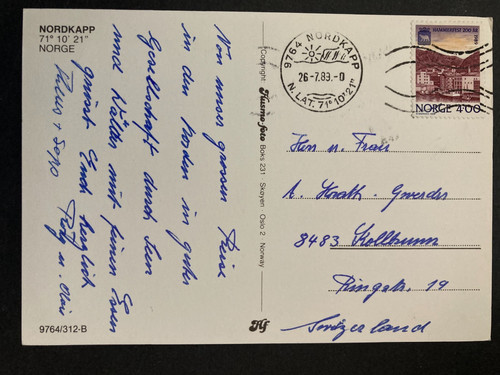 NORDKAPP
71° 10' 21"
NORGE
Von unser grossen Reise
in den Norden in guter
Gesellschaft durch Seen
und Wälder mit feinen Essen
grüsst Euch herzlich
9764/312-B
Copyright Husmo-foto Boks 231 · Skøyen · Oslo 2 · Norway
Hf
9764 NORDKAPP
26-7.89.-0
N. LAT. 71°10'21"
HAMMERFEST 200 ÅR
NORGE 4.00
Herrn u. Frau
A. Horath-Gwerder
8483 Kollbrunn
19
Switzerland